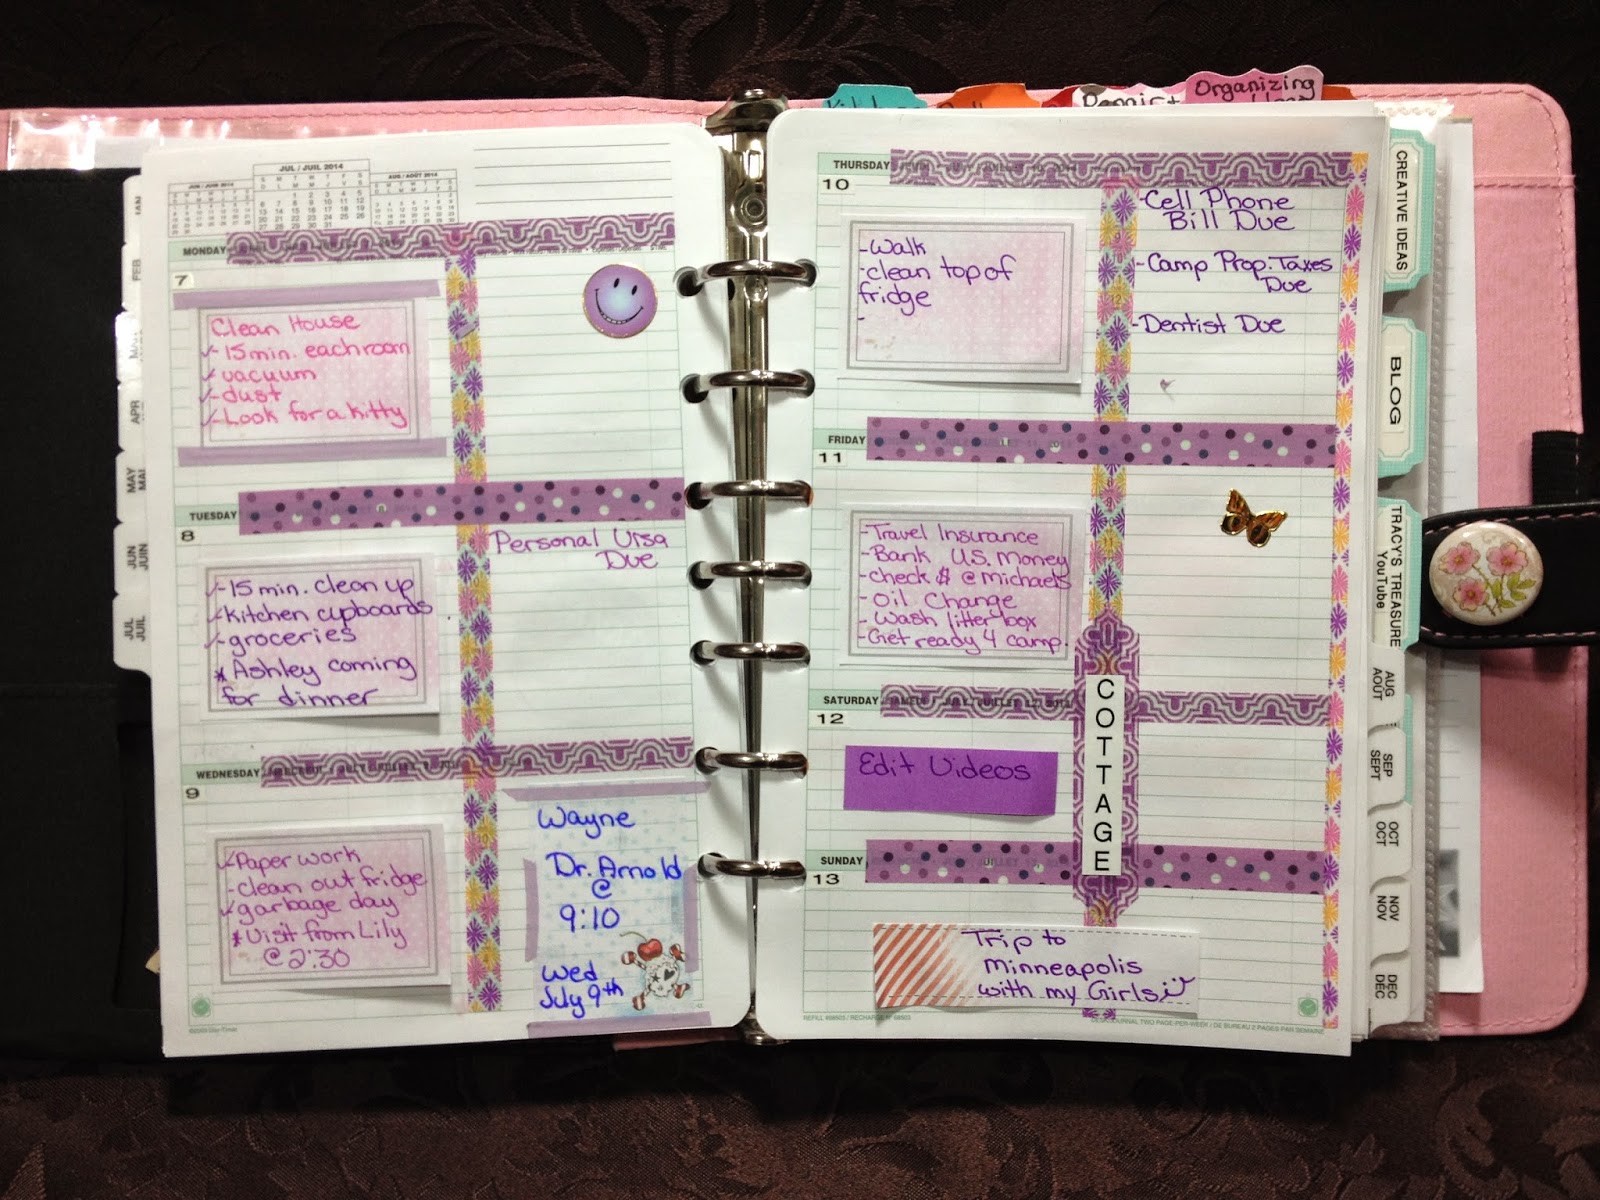 JUL / JUIL 2014
JUN / JUIN 2014
AUG / AOÛT 2014
MONDAY
7
Clean House
✓- 15 min. each room
✓- vacuum
✓- dust
✓- Look for a kitty
TUESDAY
8
Personal Visa
Due
✓- 15 min. clean up
✓- kitchen cupboards
✓- groceries
* Ashley coming
for dinner
WEDNESDAY
9
✓- Paper work
- clean out fridge
✓- garbage day
* Visit from Lily
@ 2:30
Wayne
Dr. Arnold
@
9:10
Wed
July 9th
JAN
FEB
APR
MAY
MAI
JUN
JUIN
JUL
JUIL
Organizing
THURSDAY
10
- Walk
- clean top of
fridge
-
- Cell Phone
Bill Due
- Camp Prop. Taxes
Due
- Dentist Due
FRIDAY
11
- Travel Insurance
- Bank U.S. Money
- check $ @ michaels
- Oil Change
- Wash litter box
- Get ready 4 camp.
SATURDAY
12
Edit Videos
COTTAGE
SUNDAY
13
Trip to
Minneapolis
with my Girls
CREATIVE IDEAS
BLOG
TRACY'S TREASURE
YouTube
AUG
AOÛT
SEP
SEPT
OCT
OCT
NOV
NOV
DEC
DÉC